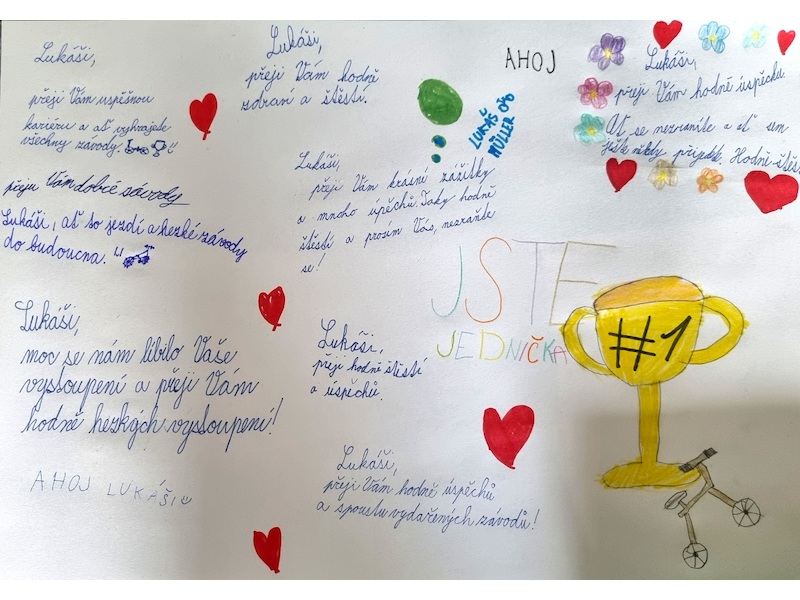 Lukáši,
přeji Vám úspěšnou
kariéru a ať vyhrajete
všechny závody.
Lukáši,
přeji Vám hodně
zdraví a štěstí.
AHOJ
LUKÁŠ
MÜLLER
Lukáši,
přeji Vám hodně úspěchu.
Ať se nezraníte a ať sem
ještě někdy přijedete. Hodně štěstí
přeju Vám dobré závody
Lukáši, ať to jezdí a hezké závody
do budoucna.
Lukáši,
přeji Vám krásné zážitky
a mnoho úpěchů. Taky hodně
štěstí a prosím Vás, nezraňte
se!
JSTE
JEDNIČKA
#1
Lukáši,
moc se nám líbilo Vaše
vystoupení a přeji Vám
hodně hezkých vystoupení!
AHOJ LUKÁŠI
Lukáši,
přeji hodně štěstí
a úspěchů.
Lukáši,
přeji Vám hodně úspěchů
a spoustu vydařených závodů!